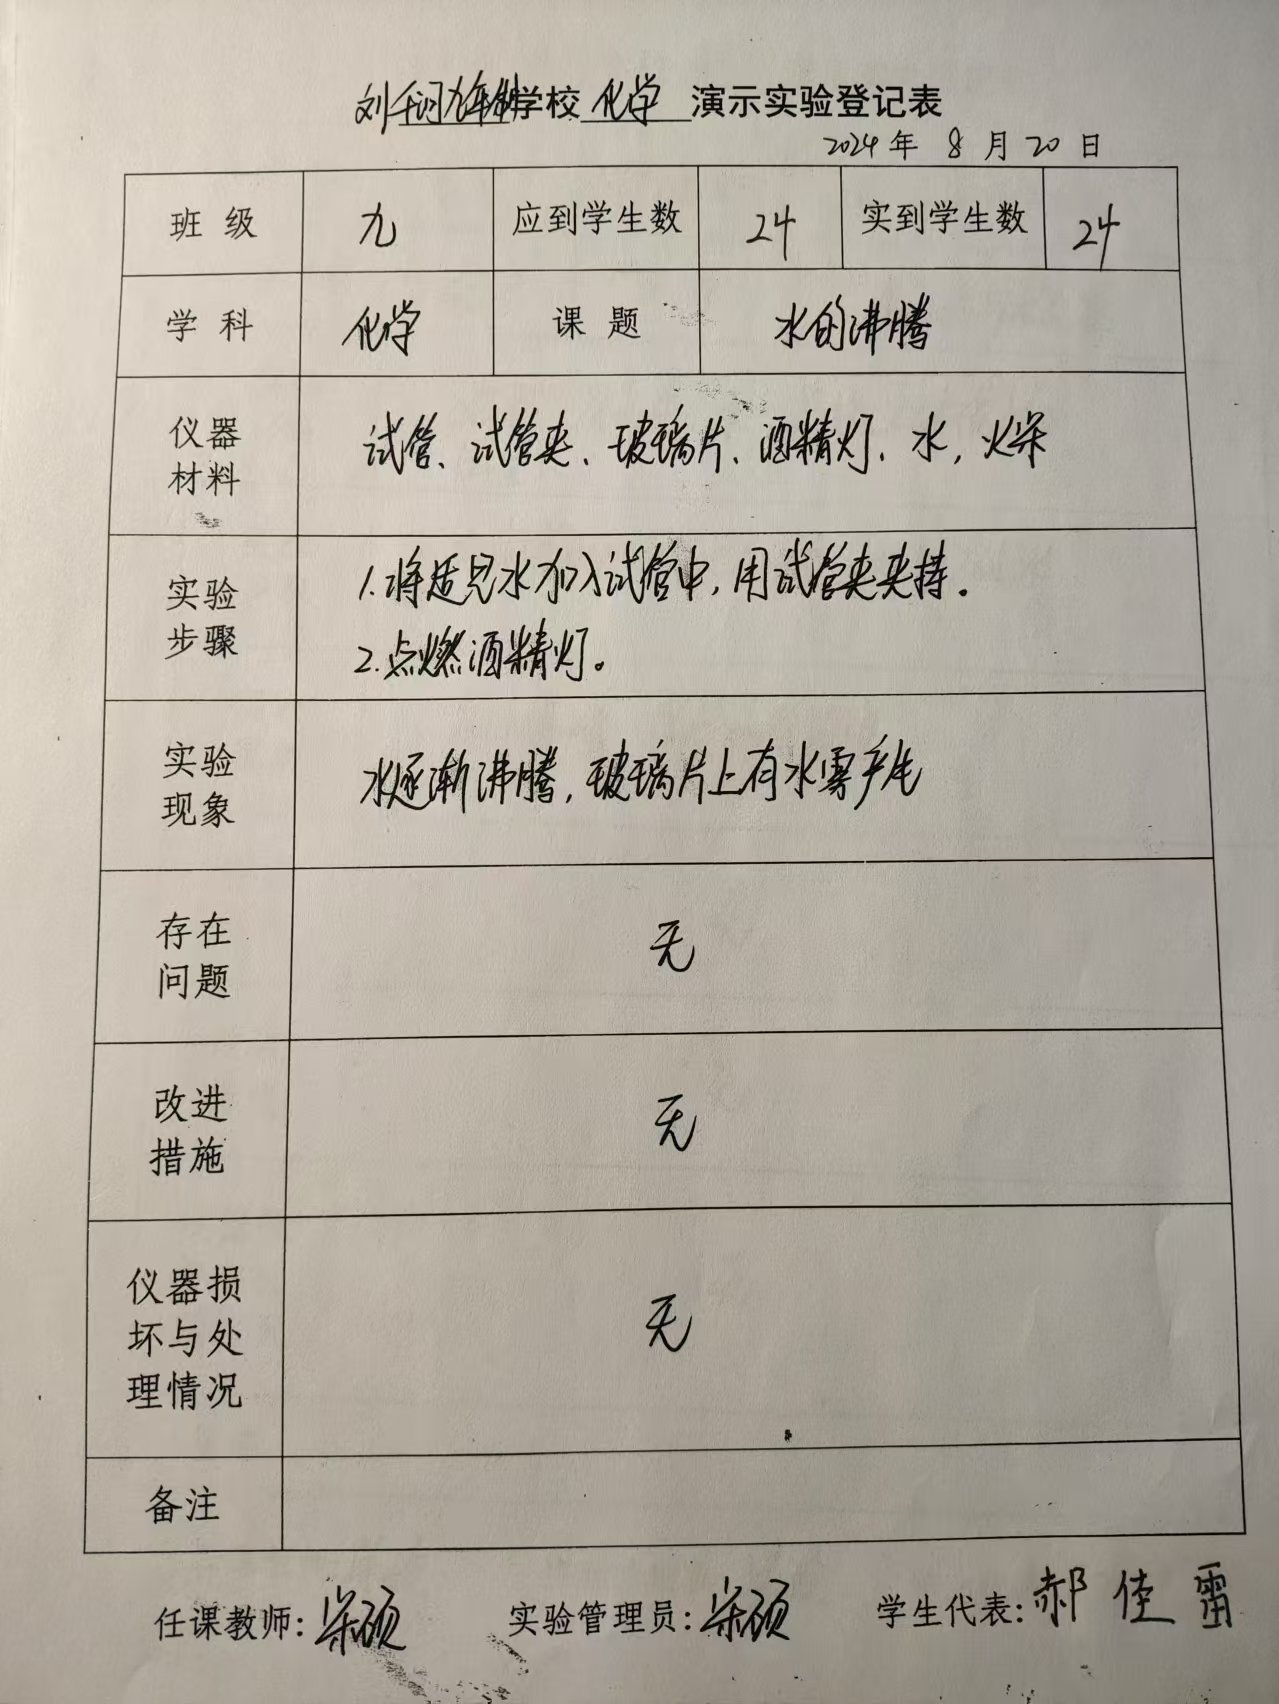 刘千河九年制学校 化学 演示实验登记表
2024年 8 月 20 日
班 级 九 应到学生数 24 实到学生数 24
学 科 化学 课 题 水的沸腾
仪器
材料
试管、试管夹、玻璃片、酒精灯、水,火柴
实验
步骤
1.将适见水加入试管中,用试管夹夹持。
2.点燃酒精灯。
实验
现象
水逐渐沸腾,玻璃片上有水雾产生
存在
问题
无
改进
措施
无
仪器损
坏与处
理情况
无
备注
任课教师: 硕 实验管理员: 硕 学生代表:郝佳雷